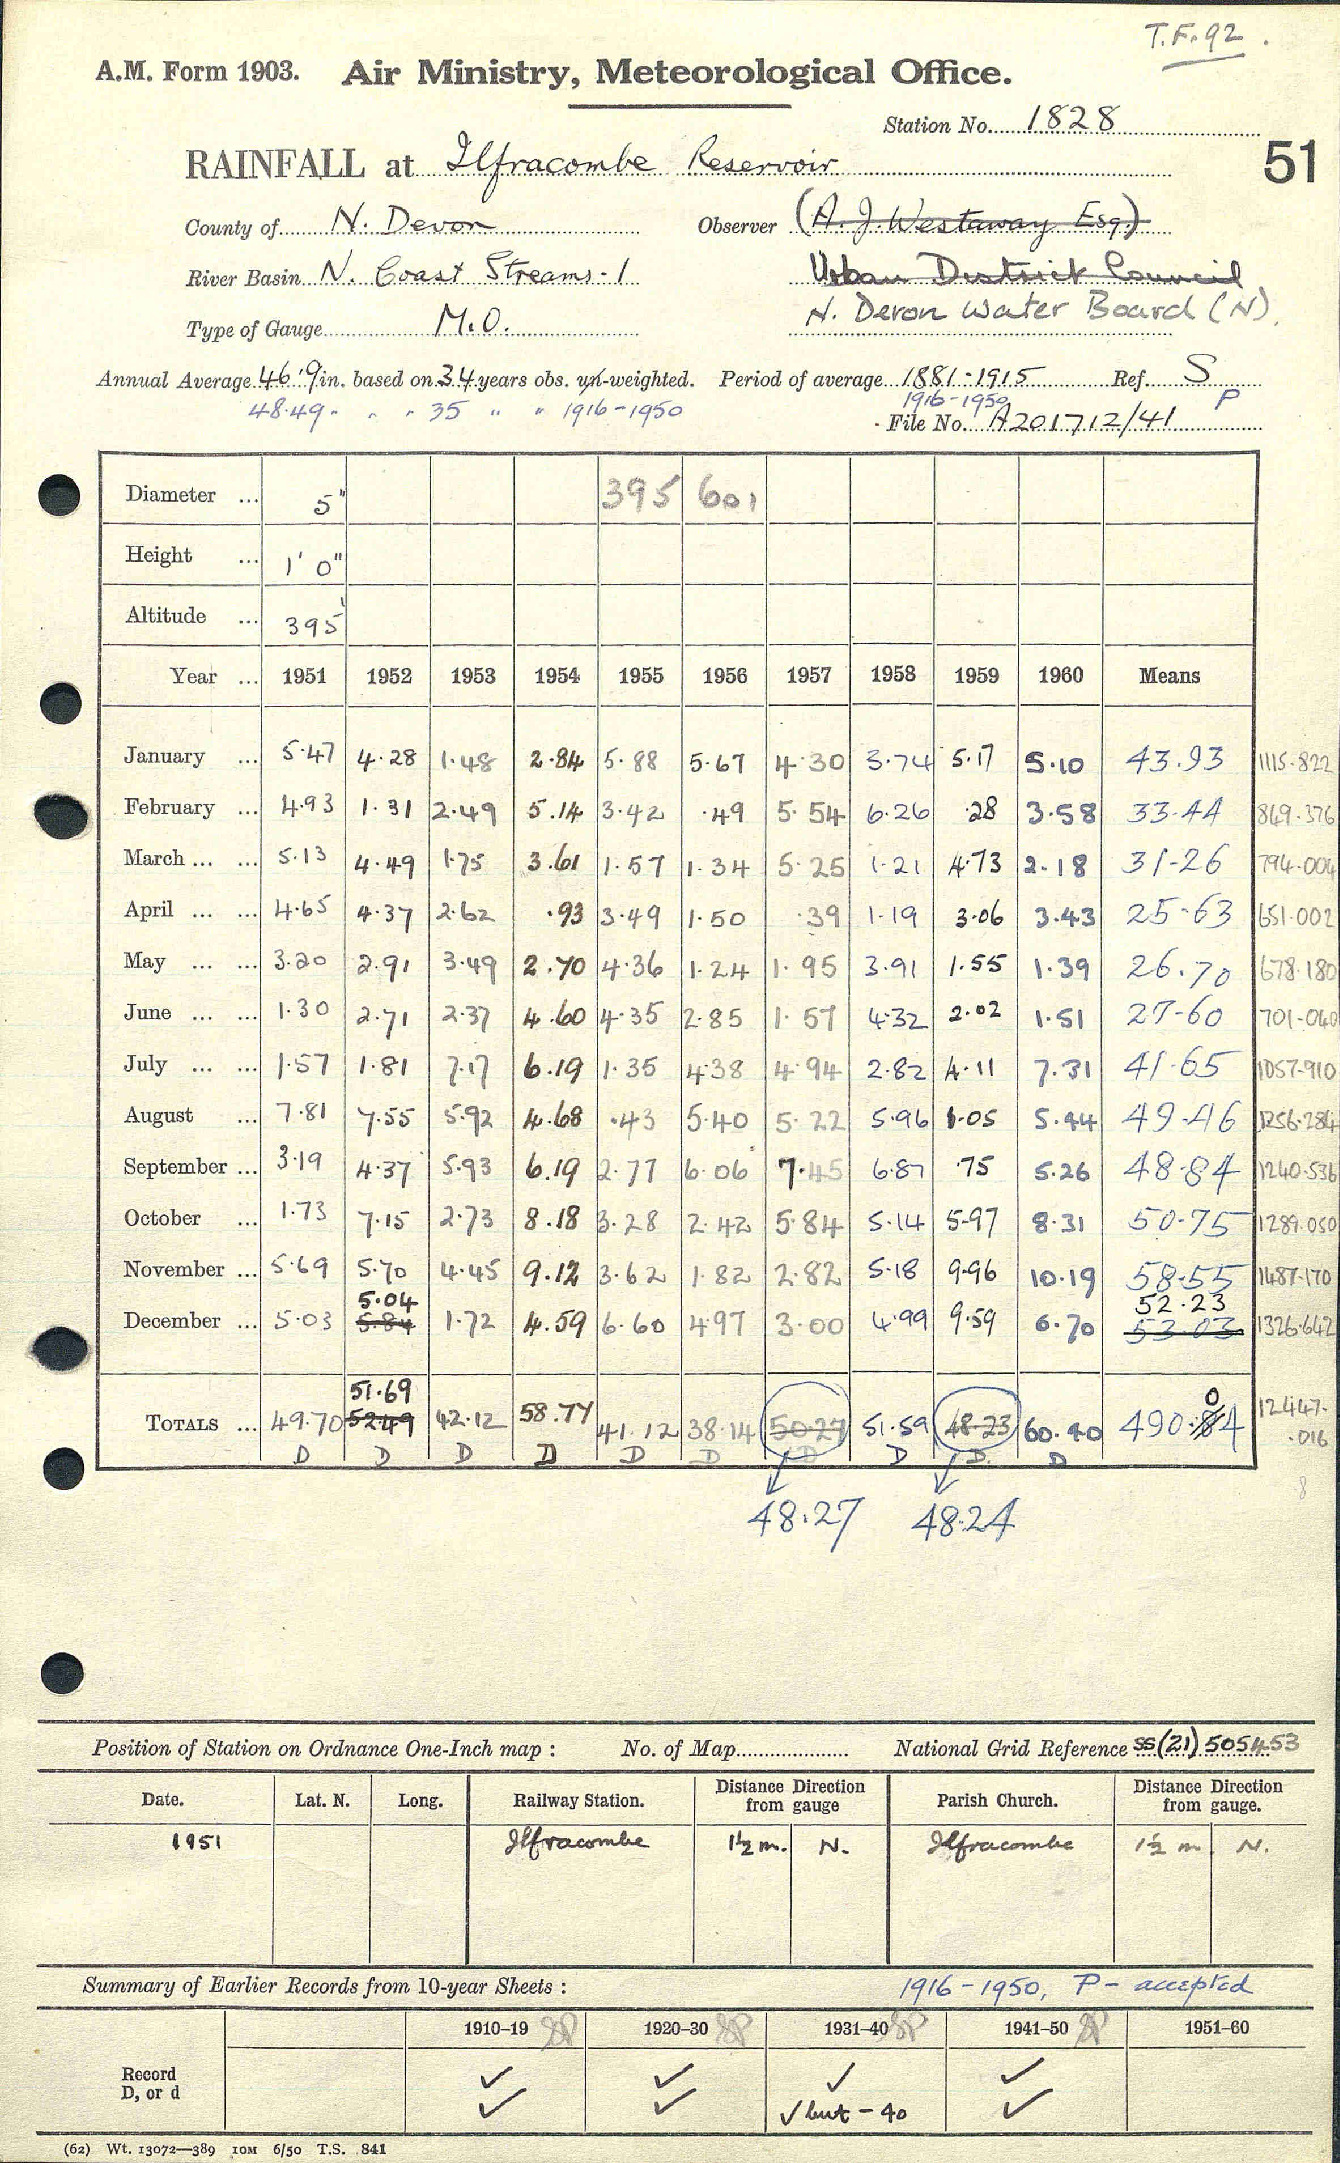 T.F.92.
A.M. Form 1903. Air Ministry, Meteorological Office.
Station No. 1828
RAINFALL at Ilfracombe Reservoir 51
County of N. Devon Observer (A. J. Westaway Esq.)
River Basin N. Coast Streams-1 Urban District Council
Type of Gauge M.O. N. Devon Water Board (N).
Annual Average 46.9 in. based on 34 years obs. un-weighted. Period of average 1881-1915 Ref. S
48.49 " " " 35 " " 1916-1950 1916-1950 P
File No. A201712/41
Diameter ... 5" 395 601
Height ... 1' 0"
Altitude ... 395'
Year ... 1951 1952 1953 1954 1955 1956 1957 1958 1959 1960 Means
January ... 5.47 4.28 1.48 2.84 5.88 5.67 4.30 3.74 5.17 5.10 43.93 1115.822
February ... 4.93 1.31 2.49 5.14 3.42 .49 5.54 6.26 .28 3.58 33.44 849.376
March ... ... 5.13 4.49 1.75 3.61 1.57 1.34 5.25 1.21 4.73 2.18 31-26 794.004
April ... ... 4.65 4.37 2.62 .93 3.49 1.50 .39 1.19 3.06 3.43 25.63 651.002
May ... ... 3.20 2.91 3.49 2.70 4.36 1.24 1.95 3.91 1.55 1.39 26.70 678.180
June ... ... 1.30 2.71 2.37 4.60 4.35 2.85 1.57 4.32 2.02 1.51 27-60 701-040
July ... ... 1.57 1.81 7.17 6.19 1.35 4.38 4.94 2.82 4.11 7.31 41.65 1057.910
August ... 7.81 7.55 5.92 4.68 .43 5.40 5.22 5.96 1.05 5.44 49-46 1256.284
September ... 3.19 4.37 5.93 6.19 2.77 6.06 7.45 6.87 .75 5.26 48.84 1240.536
October ... 1.73 7.15 2.73 8.18 3.28 2.42 5.84 5.14 5.97 8.31 50.75 1289.050
November ... 5.69 5.70 4.45 9.12 3.62 1.82 2.82 5.18 9.96 10.19 58.55 1487.170
5.04 52.23
December ... 5.03 5.84 1.72 4.59 6.60 4.97 3.00 4.99 9.59 6.70 53.03 1326.642
51.69 0
TOTALS ... 49.70 52.49 42.12 58.77 41.12 38.14 50.27 51.59 48.23 60.40 490.84 12447.016
D D D D D D D D D D
8
48.27 48.24
Position of Station on Ordnance One-Inch map : No. of Map National Grid Reference SS(21) 505453
Date. Lat. N. Long. Railway Station. Distance Direction from gauge Parish Church. Distance Direction from gauge.
1951 Ilfracombe 1½ m. N. Ilfracombe 1½ m N.
Summary of Earlier Records from 10-year Sheets : 1916-1950, P- accepted
1910–19 1920–30 1931–40 1941–50 1951–60
Record ✓ ✓ ✓ ✓
D, or d ✓ ✓ ✓ but - 40 ✓
(62) Wt. 13072—389 10M 6/50 T.S. 841